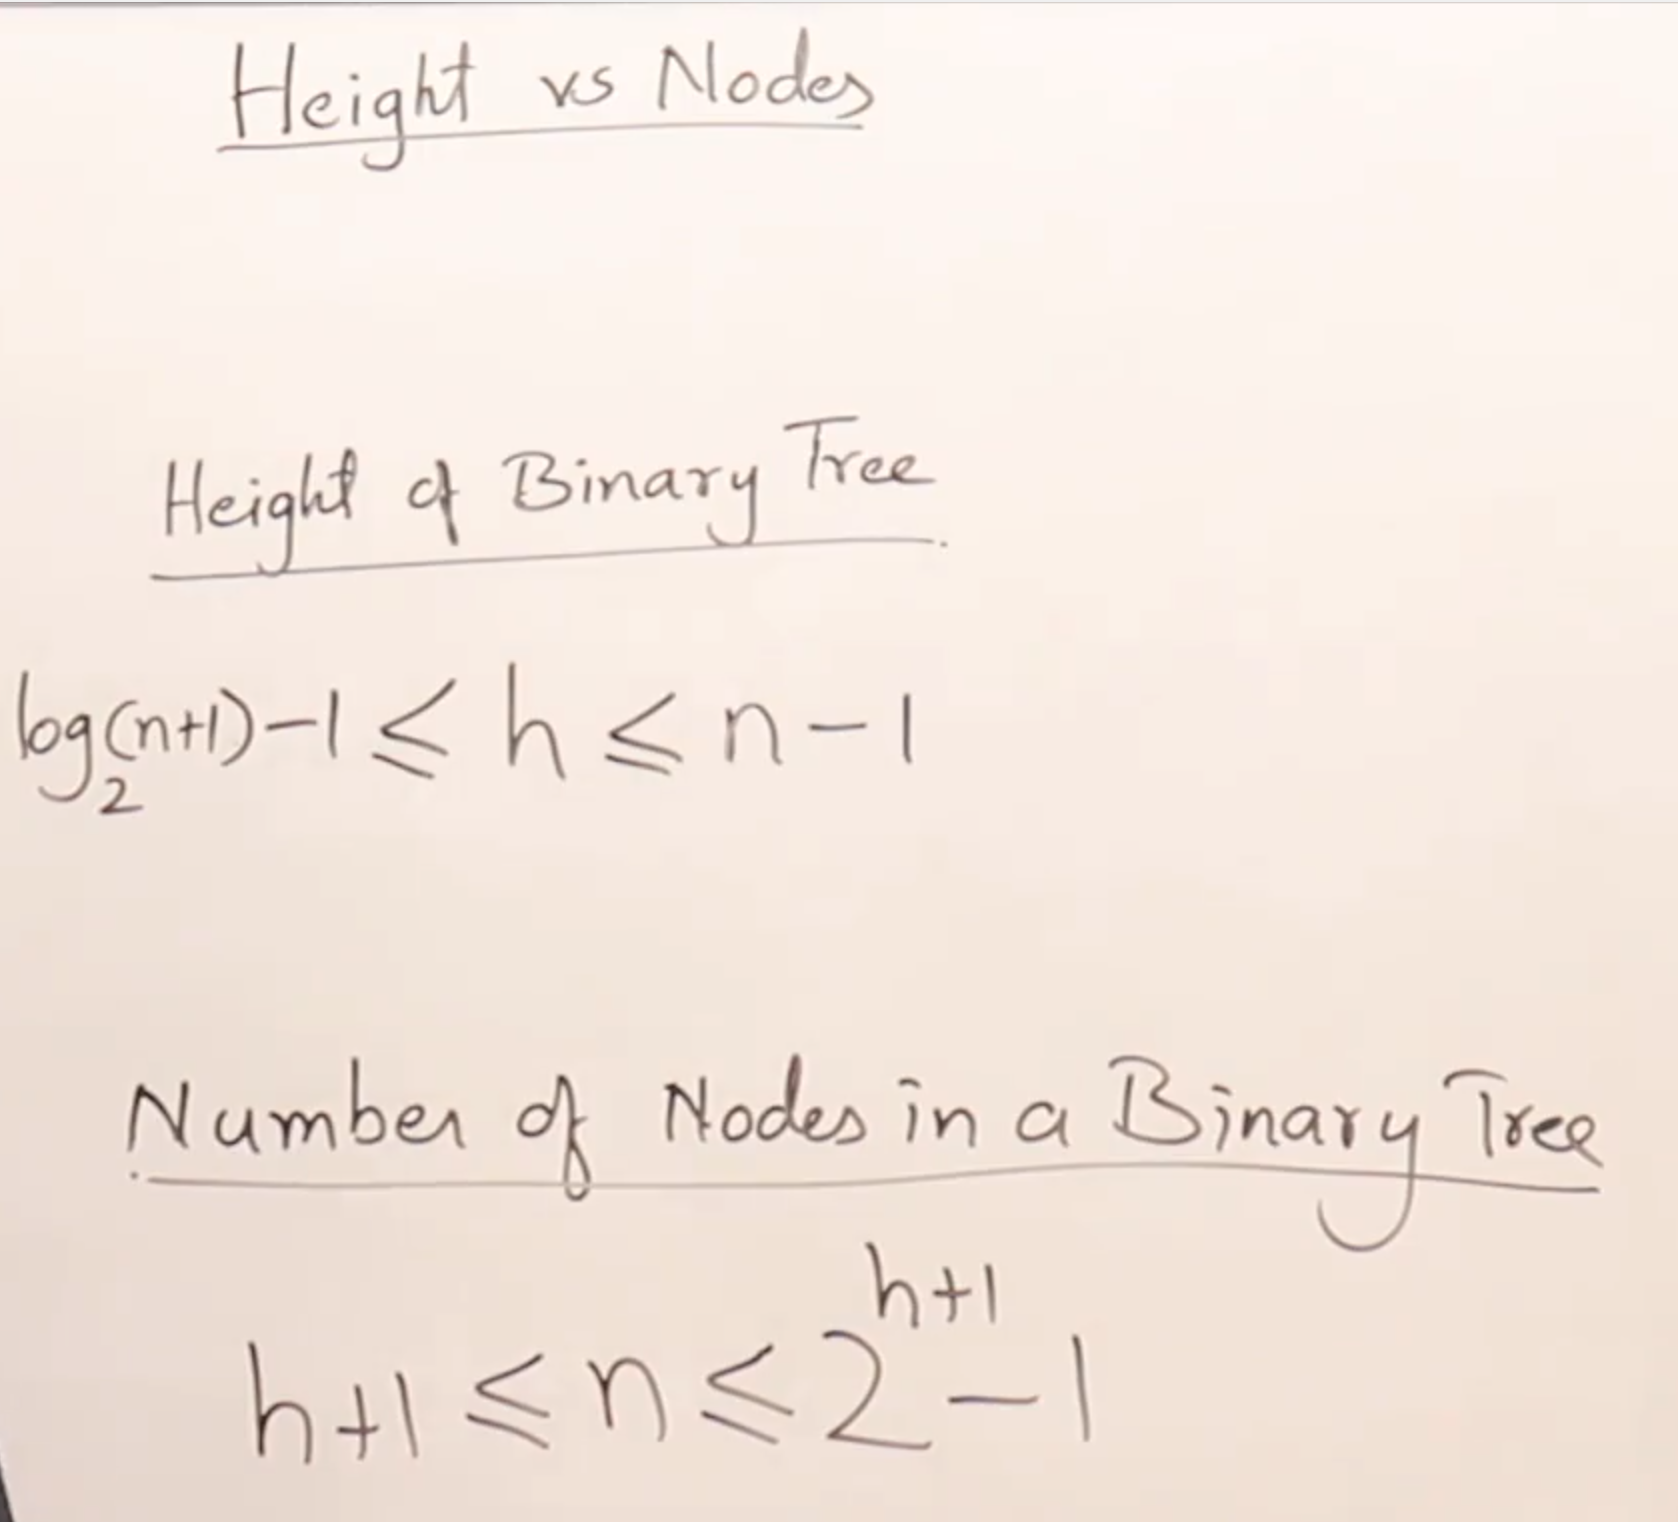 Height vs Nodes
Height of Binary Tree
log₂(n+1)-1 ≤ h ≤ n-1
Number of Nodes in a Binary Tree
h+1 ≤ n ≤ 2^{h+1} - 1